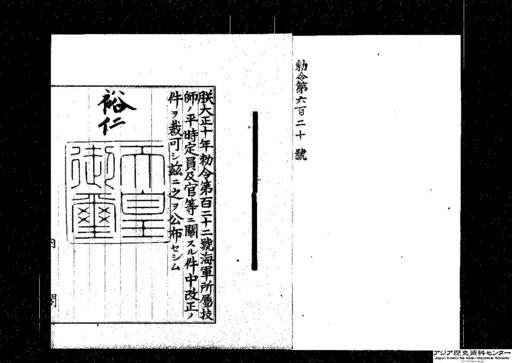 勅令第六百二十號
朕大正十年勅令第百二十二號海軍所屬技
師ノ平時定員及官等ニ關スル件中改正ノ
件ヲ裁可シ茲ニ之ヲ公布セシム
裕仁
天皇
御璽
内閣
アジア歴史資料センター
Japan Center for Asian Historical Records